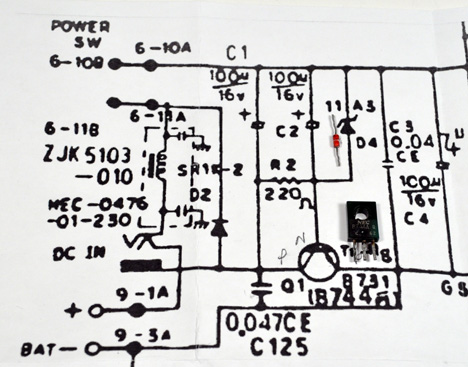 POWER
SW
6-10A
6-10B
C1
100μ
16v
100μ
16v
+
+
6-11A
6-11B
11 A3
D4
C2
C3
0.04
CE
ZJK5103
-010
D2
R2
220
100μ
16v
C4
MEC-0476
-01-230
DC IN
P N
Q1
B731
(B744
+
9-1A
0.047CE
C125
BAT-
9-3A
GS